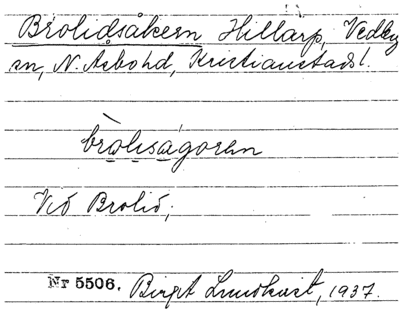 Brolidsåkern Hillarp, Vedby
sn, N. Åsbo hd, Kristianstads l.
bròlisågoren
Vid Brolid;
Nr 5506. Birgit Lundkvist, 1937.